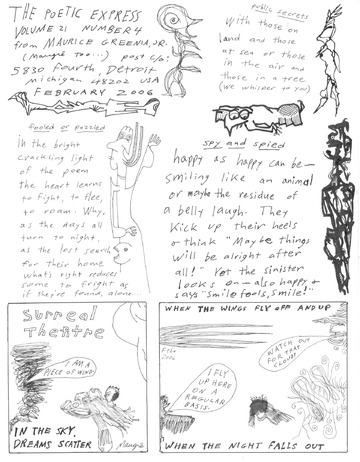 THE POETIC EXPRESS
VOLUME 21 NUMBER 4
from MAURICE GREENIA, JR.
(Maugré too...) post c/o:
5830 Fourth, Detroit
Michigan 48202 USA
FEBRUARY 2006
public secrets
With those on
land and those
at sea or those
in the air and
those in a tree
(we whisper to you)
fooled or puzzled
In the bright
crackling light
of the poem
the heart learns
to fight, to flee,
to roam. Why,
as the days all
turn to night
as the lost search
for their home
what's right reduces
some to fright as
if they're found, alone...
spy and spied
happy as happy can be—
smiling like an animal
or maybe the residue of
a belly laugh. They
kick up their heels
& think "Maybe things
will be alright after
all!" Yet the sinister
looks on—also happy &
says "Smile fools, smile!"
Surreal
Theatre
I AM A
PIECE OF WIND
IN THE SKY,
DREAMS SCATTER
WHEN THE WINGS FLY OFF AND UP
Feb
2006
I FLY
UP HERE
ON A
REGULAR
BASIS.
WATCH OUT
FOR THAT
CLOUD!
WHEN THE NIGHT FALLS OUT